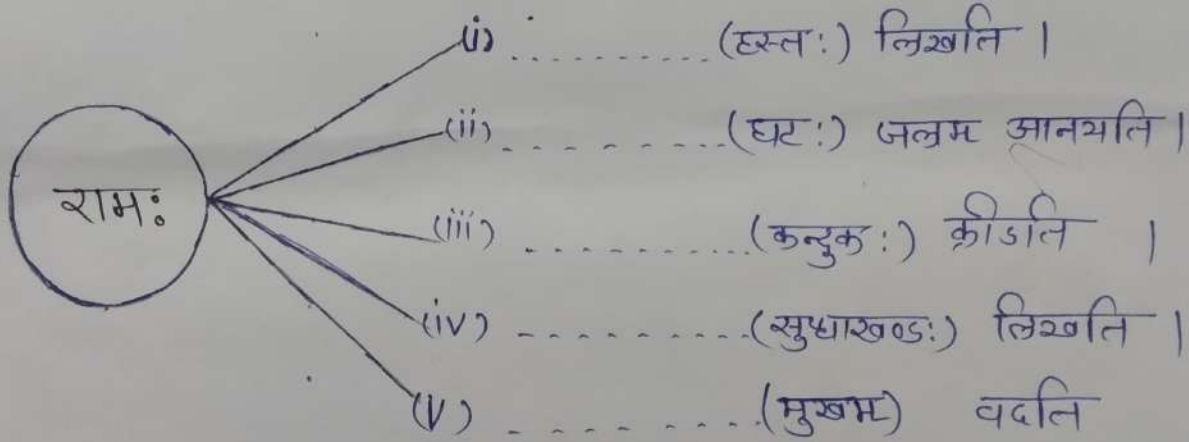 (i) ............ (हस्तः) लिखति ।
(ii) ............ (घटः) जलम आनयति ।
रामः
(iii) ............ (कन्दुकः) क्रीडति ।
(iv) ............ (सुधाखण्डः) लिखति ।
(V) ............ (मुखम) वदति